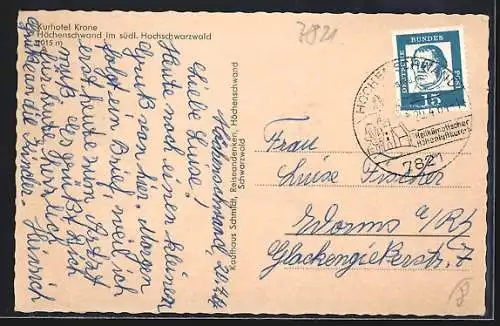 Kurhotel Krone
Höchenschwand im südl. Hochschwarzwald
1015 m
7821
Höchenschwand 20.4.
Liebe Luise!
Heute noch einen kleinen
Gruß von hier. Morgen
folgt ein Brief, weil ich
erst heute zum Arzt
muß. Es grüßt Dich
Heinrich
Gruß an die Kinder.
Kaufhaus Schmidt, Reiseandenken, Höchenschwand
Schwarzwald
DEUTSCHE BUNDESPOST
15
Heilklimatischer
Höhenluftkurort
7821
Frau
Luise Fischer
Worms a/Rh
Glockengießerstr. 7